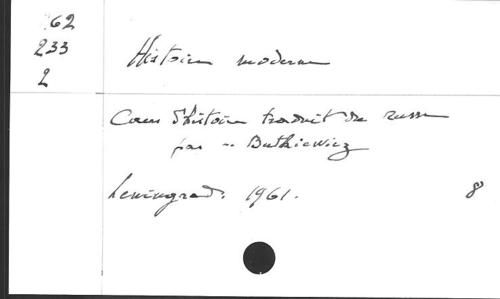 62
233
2
Histoire moderne
Cours d'histoire traduit du russe
par -- Buthiewicz
Leningrad. 1961. 8